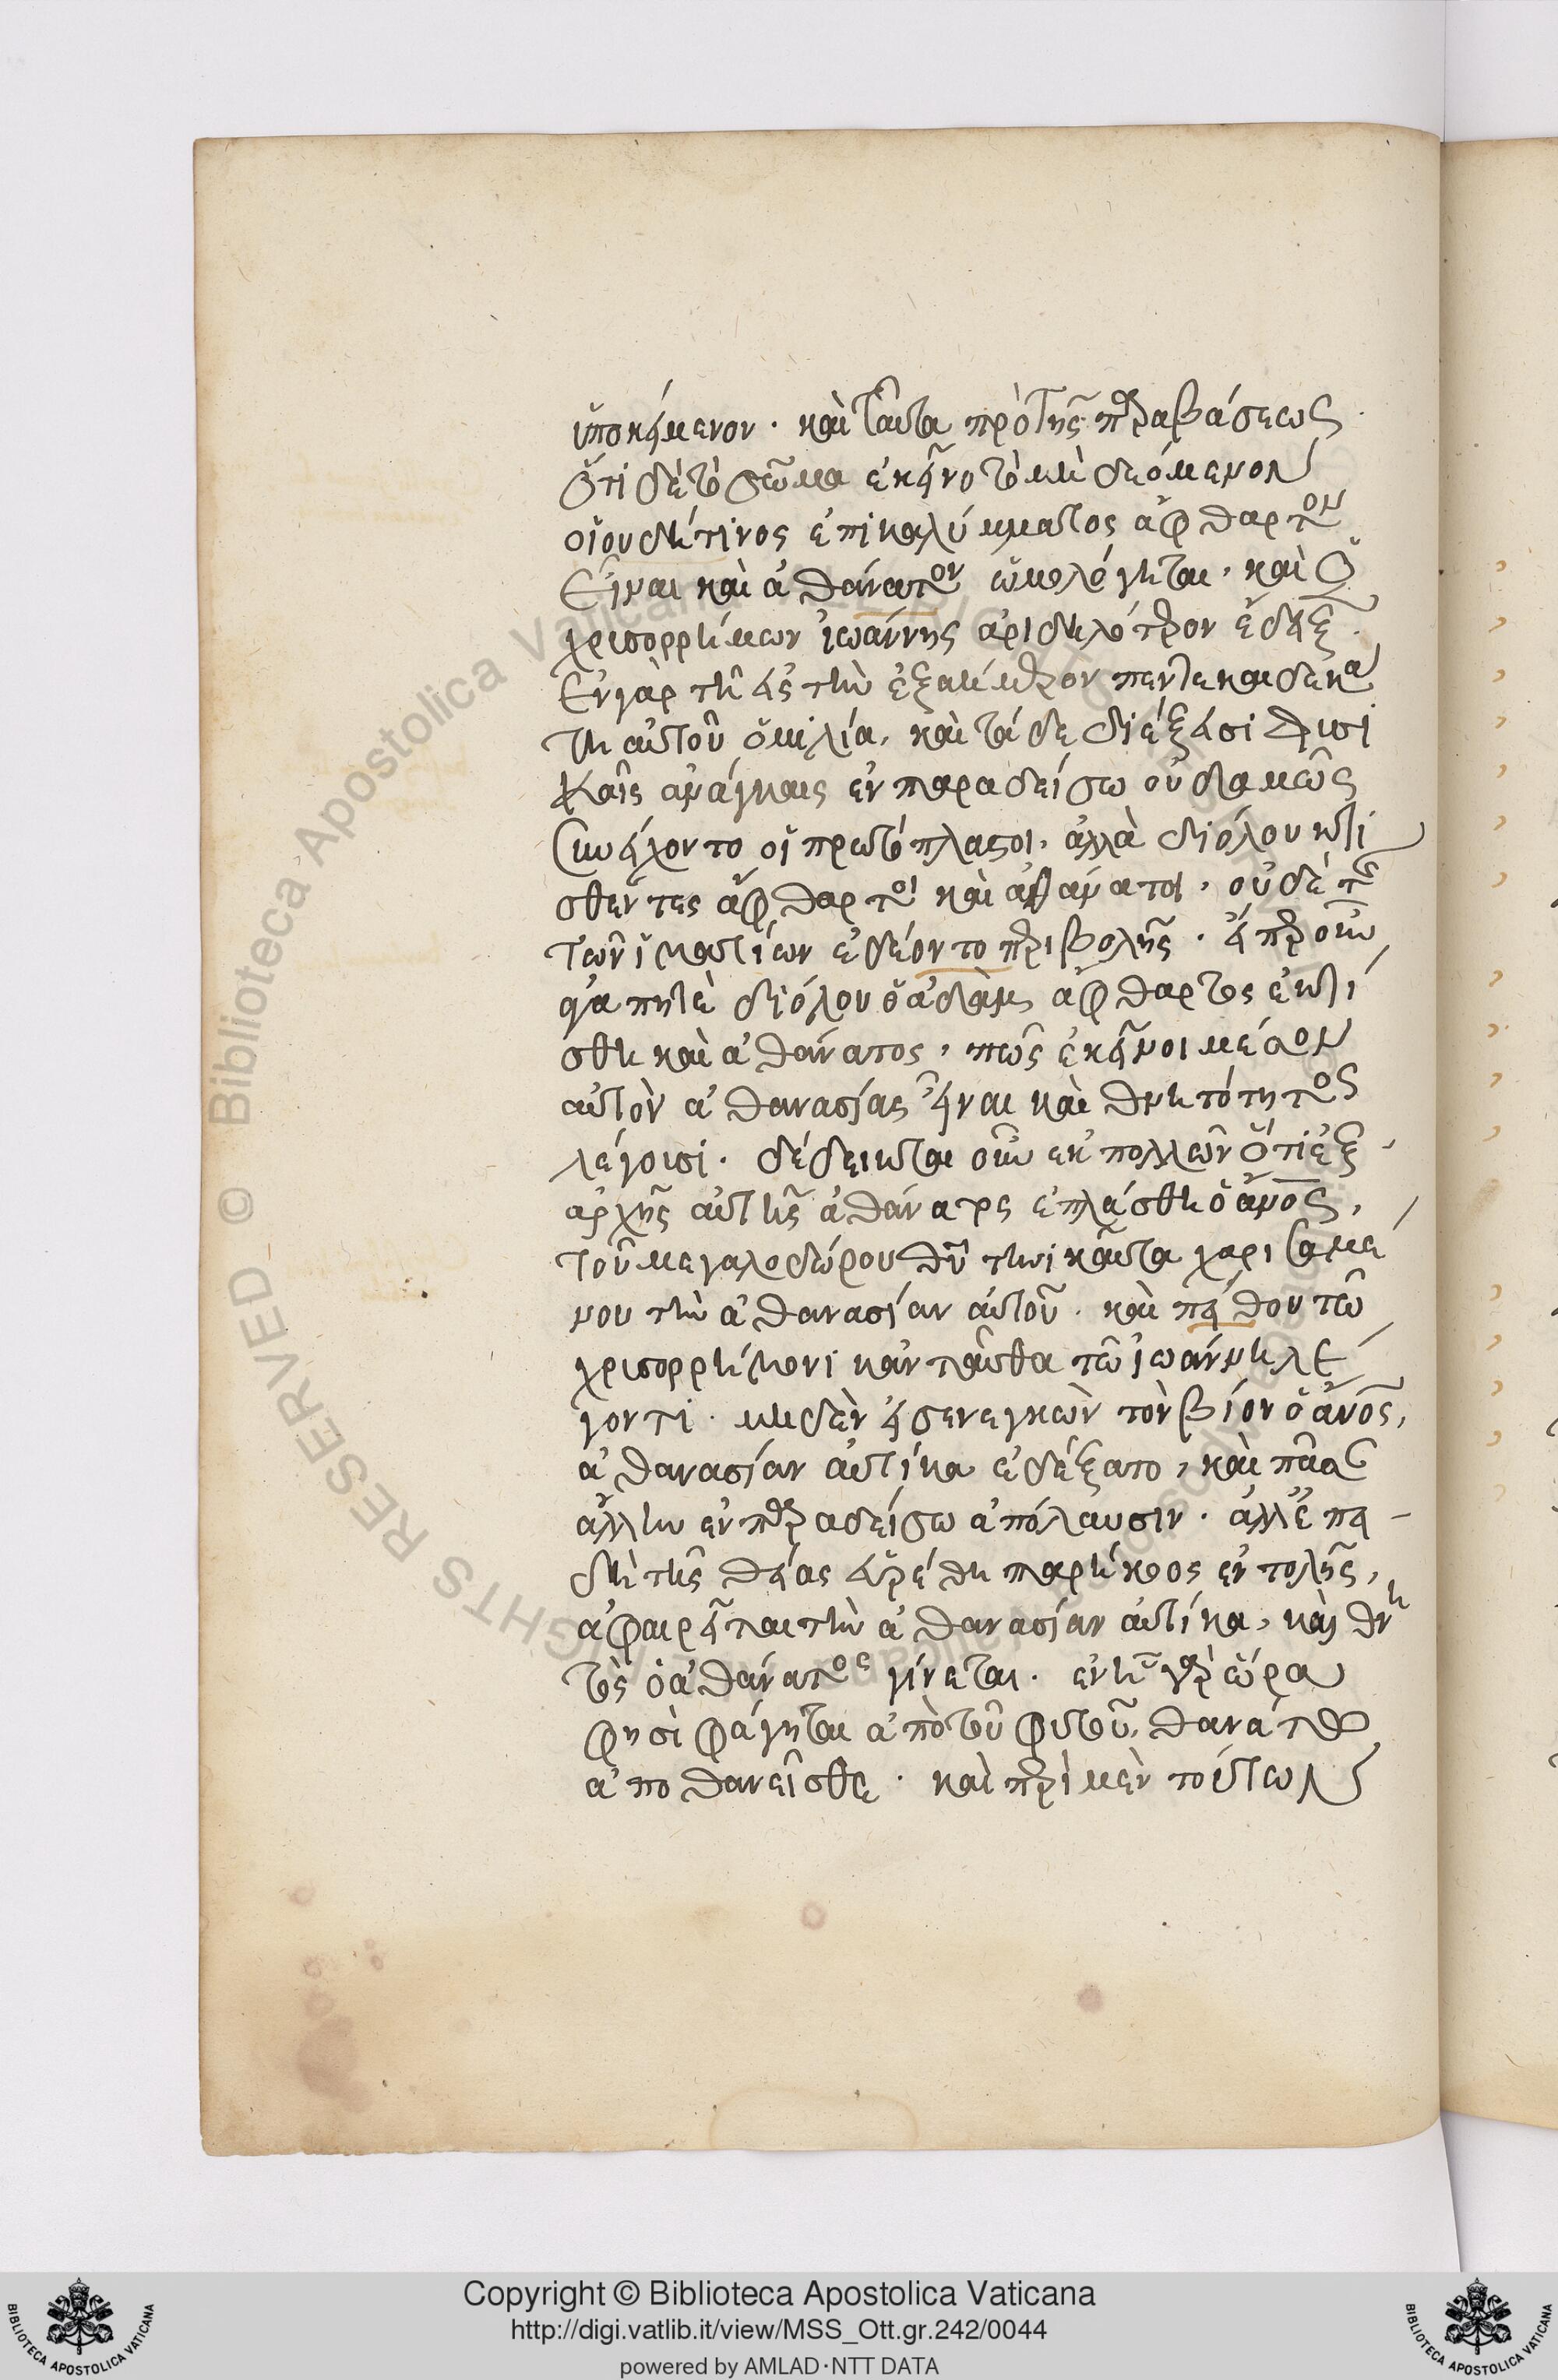 ὑποκείμενον. καὶ ταῦτα πρὸ τῆς παραβάσεως
ὅτι δὲ τὸ σῶμα ἐκεῖνο τὸ μὴ δεόμενον
οἱουδήτινος ἐπικαλύμματος ἄφθαρτον
εἶναι καὶ ἀθάνατον ὡμολόγηται, καὶ ὁ
χρυσορρήμων ἰωάννης ἀριδηλότερον ἔδειξ
ἐν γὰρ τῆ εἰς τὴν ἑξαήμερον πεντεκαιδεκά
τη αὐτοῦ ὁμιλία, καὶ τάδε διέξεισι
ταῖς ἀνάγκαις ἐν παραδείσω οὐδαμῶς
συνείχοντο οἱ πρωτόπλαστοι, ἀλλὰ διόλου κτι
σθέντες ἄφθαρτοι καὶ ἀθάνατοι, οὐδὲ τῆς
τῶν ἱματίων ἐδέοντο περιβολῆς. εἴπερ οὖν
διόλου ὁ ἀδὰμ ἄφθαρτος ἐκτί
σθη καὶ ἀθάνατος, πῶς ἐκεῖνοι μέσον
αὐτὸν ἀθανασίας εἶναι καὶ θνητότητος
λέγουσι. δέδεικται οὖν ἐκ πολλῶν ὅτι ἐξ
ἀρχῆς αὐτῆς ἀθάνατος ἐπλάσθη ὁ ἄνος,
τοῦ μεγαλοδώρου θῦ τηνικαῦτα χαρισαμέ
νου τὴν ἀθανασίαν αὐτοῦ. καὶ πείθου τῶ
χρυσορρήμονι κἀνταῦθα τῶ ἰωάννη λέ
γοντι. μηδὲν εἰσενεγκὼν τὸν βίον ὁ ἄνος,
ἀθανασίαν αὐτίκα ἐδέξατο, καὶ πᾶσαν
ἄλλην ἐν παραδείσω ἀπόλαυσιν. ἀλλ' ἐπει
δὴ τῆς θείας εὑρέθη παρήκοος ἐντολῆς,
ἀφαιρεῖται τὴν ἀθανασίαν αὐτίκα, καὶ θνη
τὸς ὁ ἀθάνατος γίνεται. ἐν ἧ γὰρ ὥρα
φησὶ φάγηται ἀπὸ τοῦ φυτοῦ, θανάτω
ἀποθανεῖσθε. καὶ περὶ μὲν τούτων
Copyright © Biblioteca Apostolica Vaticana
http://digi.vatlib.it/view/MSS_Ott.gr.242/0044
powered by AMLAD·NTT DATA
BIBLIOTECA APOSTOLICA VATICANA
BIBLIOTECA APOSTOLICA VATICANA